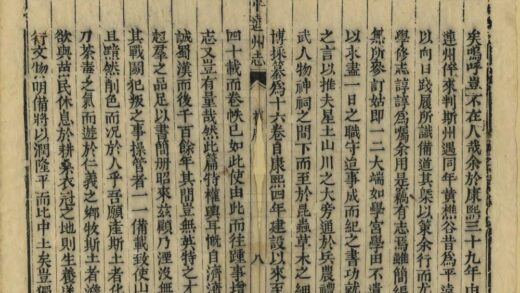 矣嗚呼豈不在人哉余於康熙三十九年由
連州倅來判斯州遇同年黃樵谷昔為平遠
以向日踐履所識備道其槩以策余行而尤
學修志諄諄為囑余用是竊有志焉雖簡編
無所參訂姑即一二大端如學宮學由不遺
以求盡一日之職守迨事成而紀之書功就
之言以推夫星土山川之大旁通於兵農禮
武人物神祠之間下而至於昆蟲草木之細
博採纂為十六卷自康熙四年建設以來至
平遠州志 八
四十載而卷帙已如此使由此而往踵事增
志又豈有量哉然此篇特權輿耳慨自濟
誠蜀漢而後千百餘年其間豈無英特之才
超羣之品足以書簡冊昭來茲顧乃湮沒無
其戰鬪犯叛之事操管者一一備載致使山
且黯然削色而况於人乎吾願產斯土者化
刀荼毒之氣而遊於仁義之鄉牧斯土者
欲與苗民休息於耕桑衣冠之地則生養遂
行文物明備將以潤隆平而比中土矣豈獨